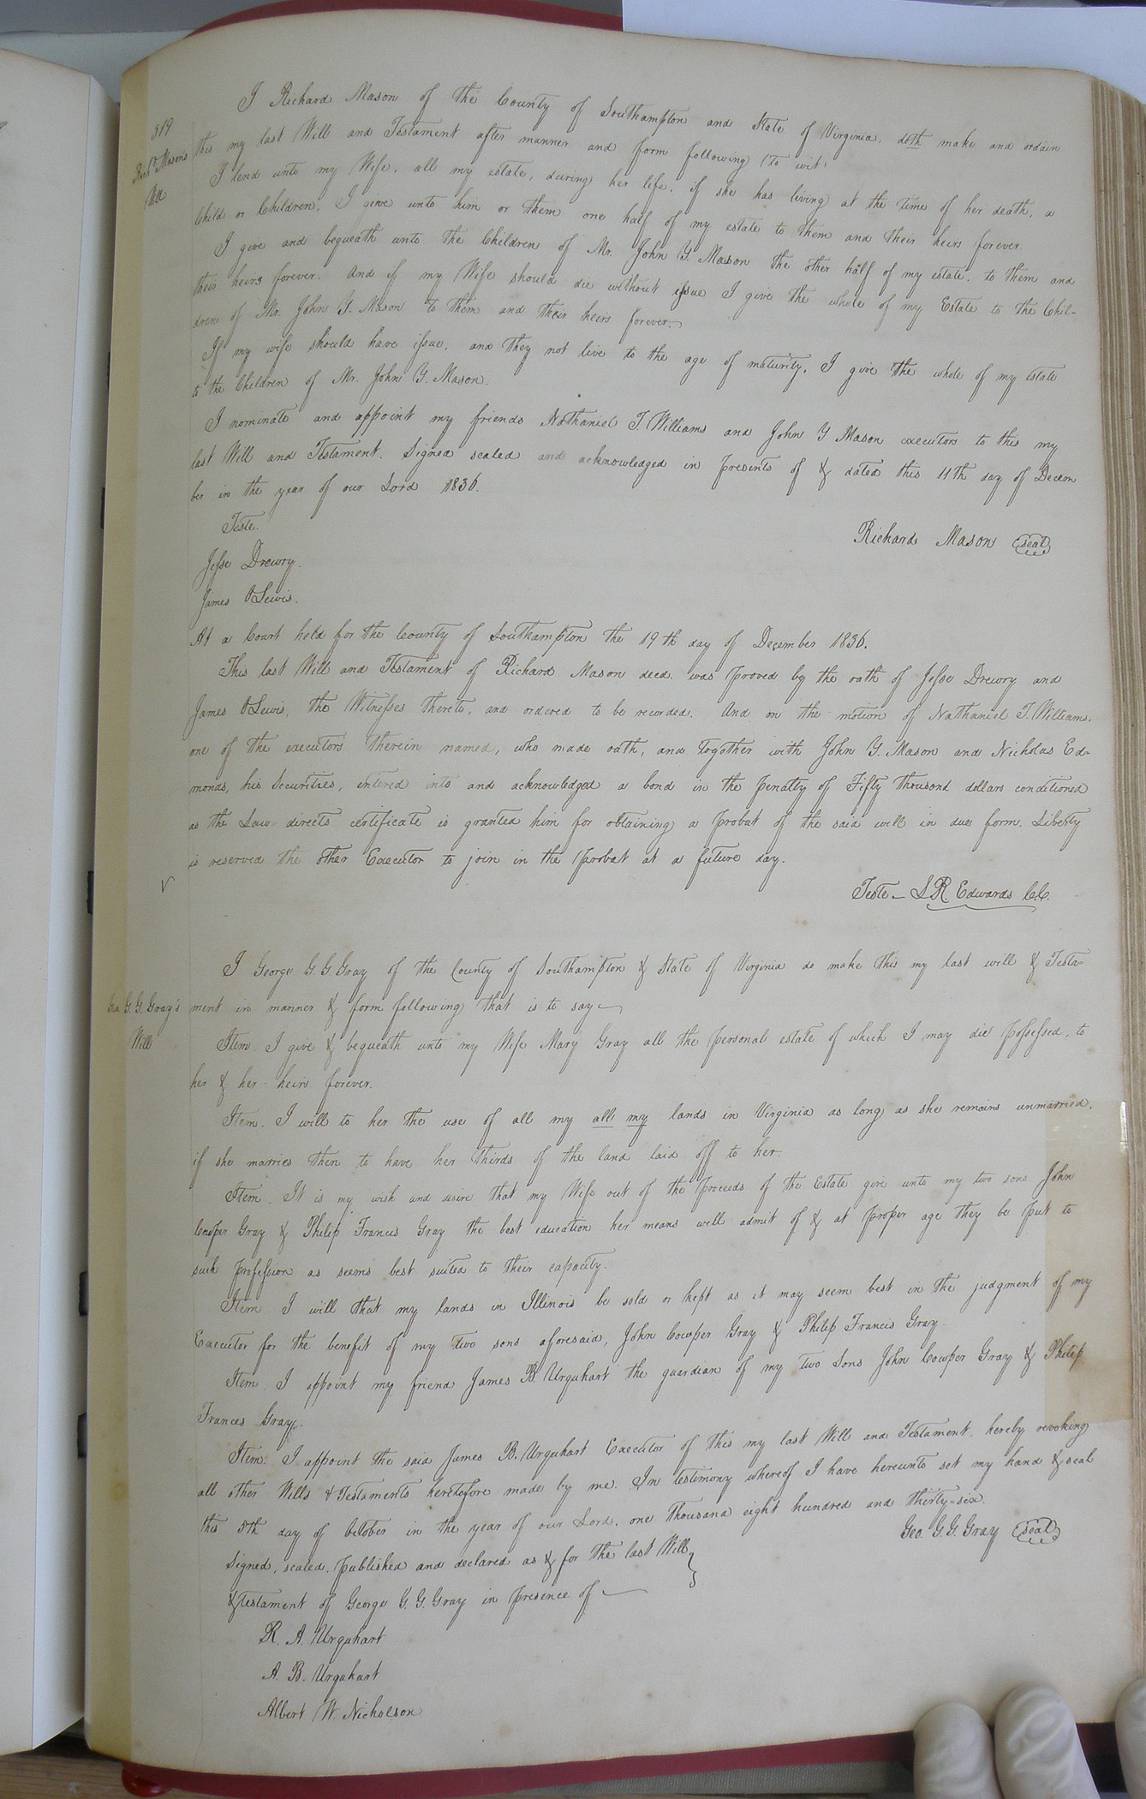 319
Rich'd Mason's
Will
I Richard Mason of the County of Southampton and State of Virginia, doth make and ordain
this my last Will and Testament after manner and form following (to wit.
I lend unto my Wife, all my estate, during her life, if she has living at the time of her death, a
Child or Children, I give unto him or them one half of my estate to them and their heirs forever.
I give and bequeath unto the Children of Mr. John Y. Mason the other half of my estate, to them and
their heirs forever. And if my Wife should die without issue I give the whole of my Estate to the Chil-
dren of Mr. John Y. Mason to them and their heirs forever.
If my wife should have issue, and they not live to the age of maturity, I give the whole of my estate
to the Children of Mr. John Y. Mason.
I nominate and appoint my friends Nathaniel T. Williams and John Y Mason executors to this my
last Will and Testament. Signed sealed and acknowledged in presents of & dated this 11th day of Decem
ber in the year of our Lord 1836.
Teste.
Richard Mason (seal)
Jesse Drewry.
James Lewis.
At a Court held for the County of Southampton the 19th day of December 1836.
This last Will and Testament of Richard Mason decd. was proved by the oath of Jesse Drewry and
James Lewis, the Witnesses thereto, and ordered to be recorded. And on the motion of Nathaniel T. Williams,
one of the executors therein named, who made oath, and together with John Y. Mason and Nicholas Ed-
monds, his Securities, entered into and acknowledged a bond in the penalty of Fifty thousand dollars conditioned
as the Law directs certificate is granted him for obtaining a probat of the said will in due form. Liberty
is reserved the other Executor to join in the probat at a future day.
Teste - L R Edwards C.C.
Geo. G. G. Gray's
Will
I George G. G. Gray of the County of Southampton & State of Virginia do make this my last will & Testa-
ment in manner & form following that is to say
Item. I give & bequeath unto my Wife Mary Gray all the personal estate of which I may die possessed, to
her & her heirs forever.
Item. I will to her the use of all my all my lands in Virginia as long as she remains unmarried,
if she marries then to have her thirds of the land laid off to her.
Item. It is my wish and desire that my Wife out of the proceeds of the Estate give unto my two sons John
Cowper Gray & Philip Francis Gray the best education her means will admit of & at proper age they be put to
such profession as seems best suited to their capacity.
Item I will that my lands in Illinois be sold or kept as it may seem best in the judgment of my
Executor for the benefit of my two sons aforesaid, John Cowper Gray & Philip Francis Gray.
Item. I appoint my friend James B. Urquhart the guardian of my two Sons John Cowper Gray & Philip
Frances Gray.
Item. I appoint the said James B. Urquhart Executor of this my last Will and Testament, hereby revoking
all other Wills & Testaments heretofore made by me. In testimony whereof I have hereunto set my hand & seal
this 8th day of October in the year of our Lord, one thousand eight hundred and thirty-six.
Geo. G. G. Gray (seal)
Signed, sealed, published and declared as & for the last Will
& testament of George G. G. Gray in presence of
R. A. Urquhart
A. B. Urquhart
Albert W. Nicholson